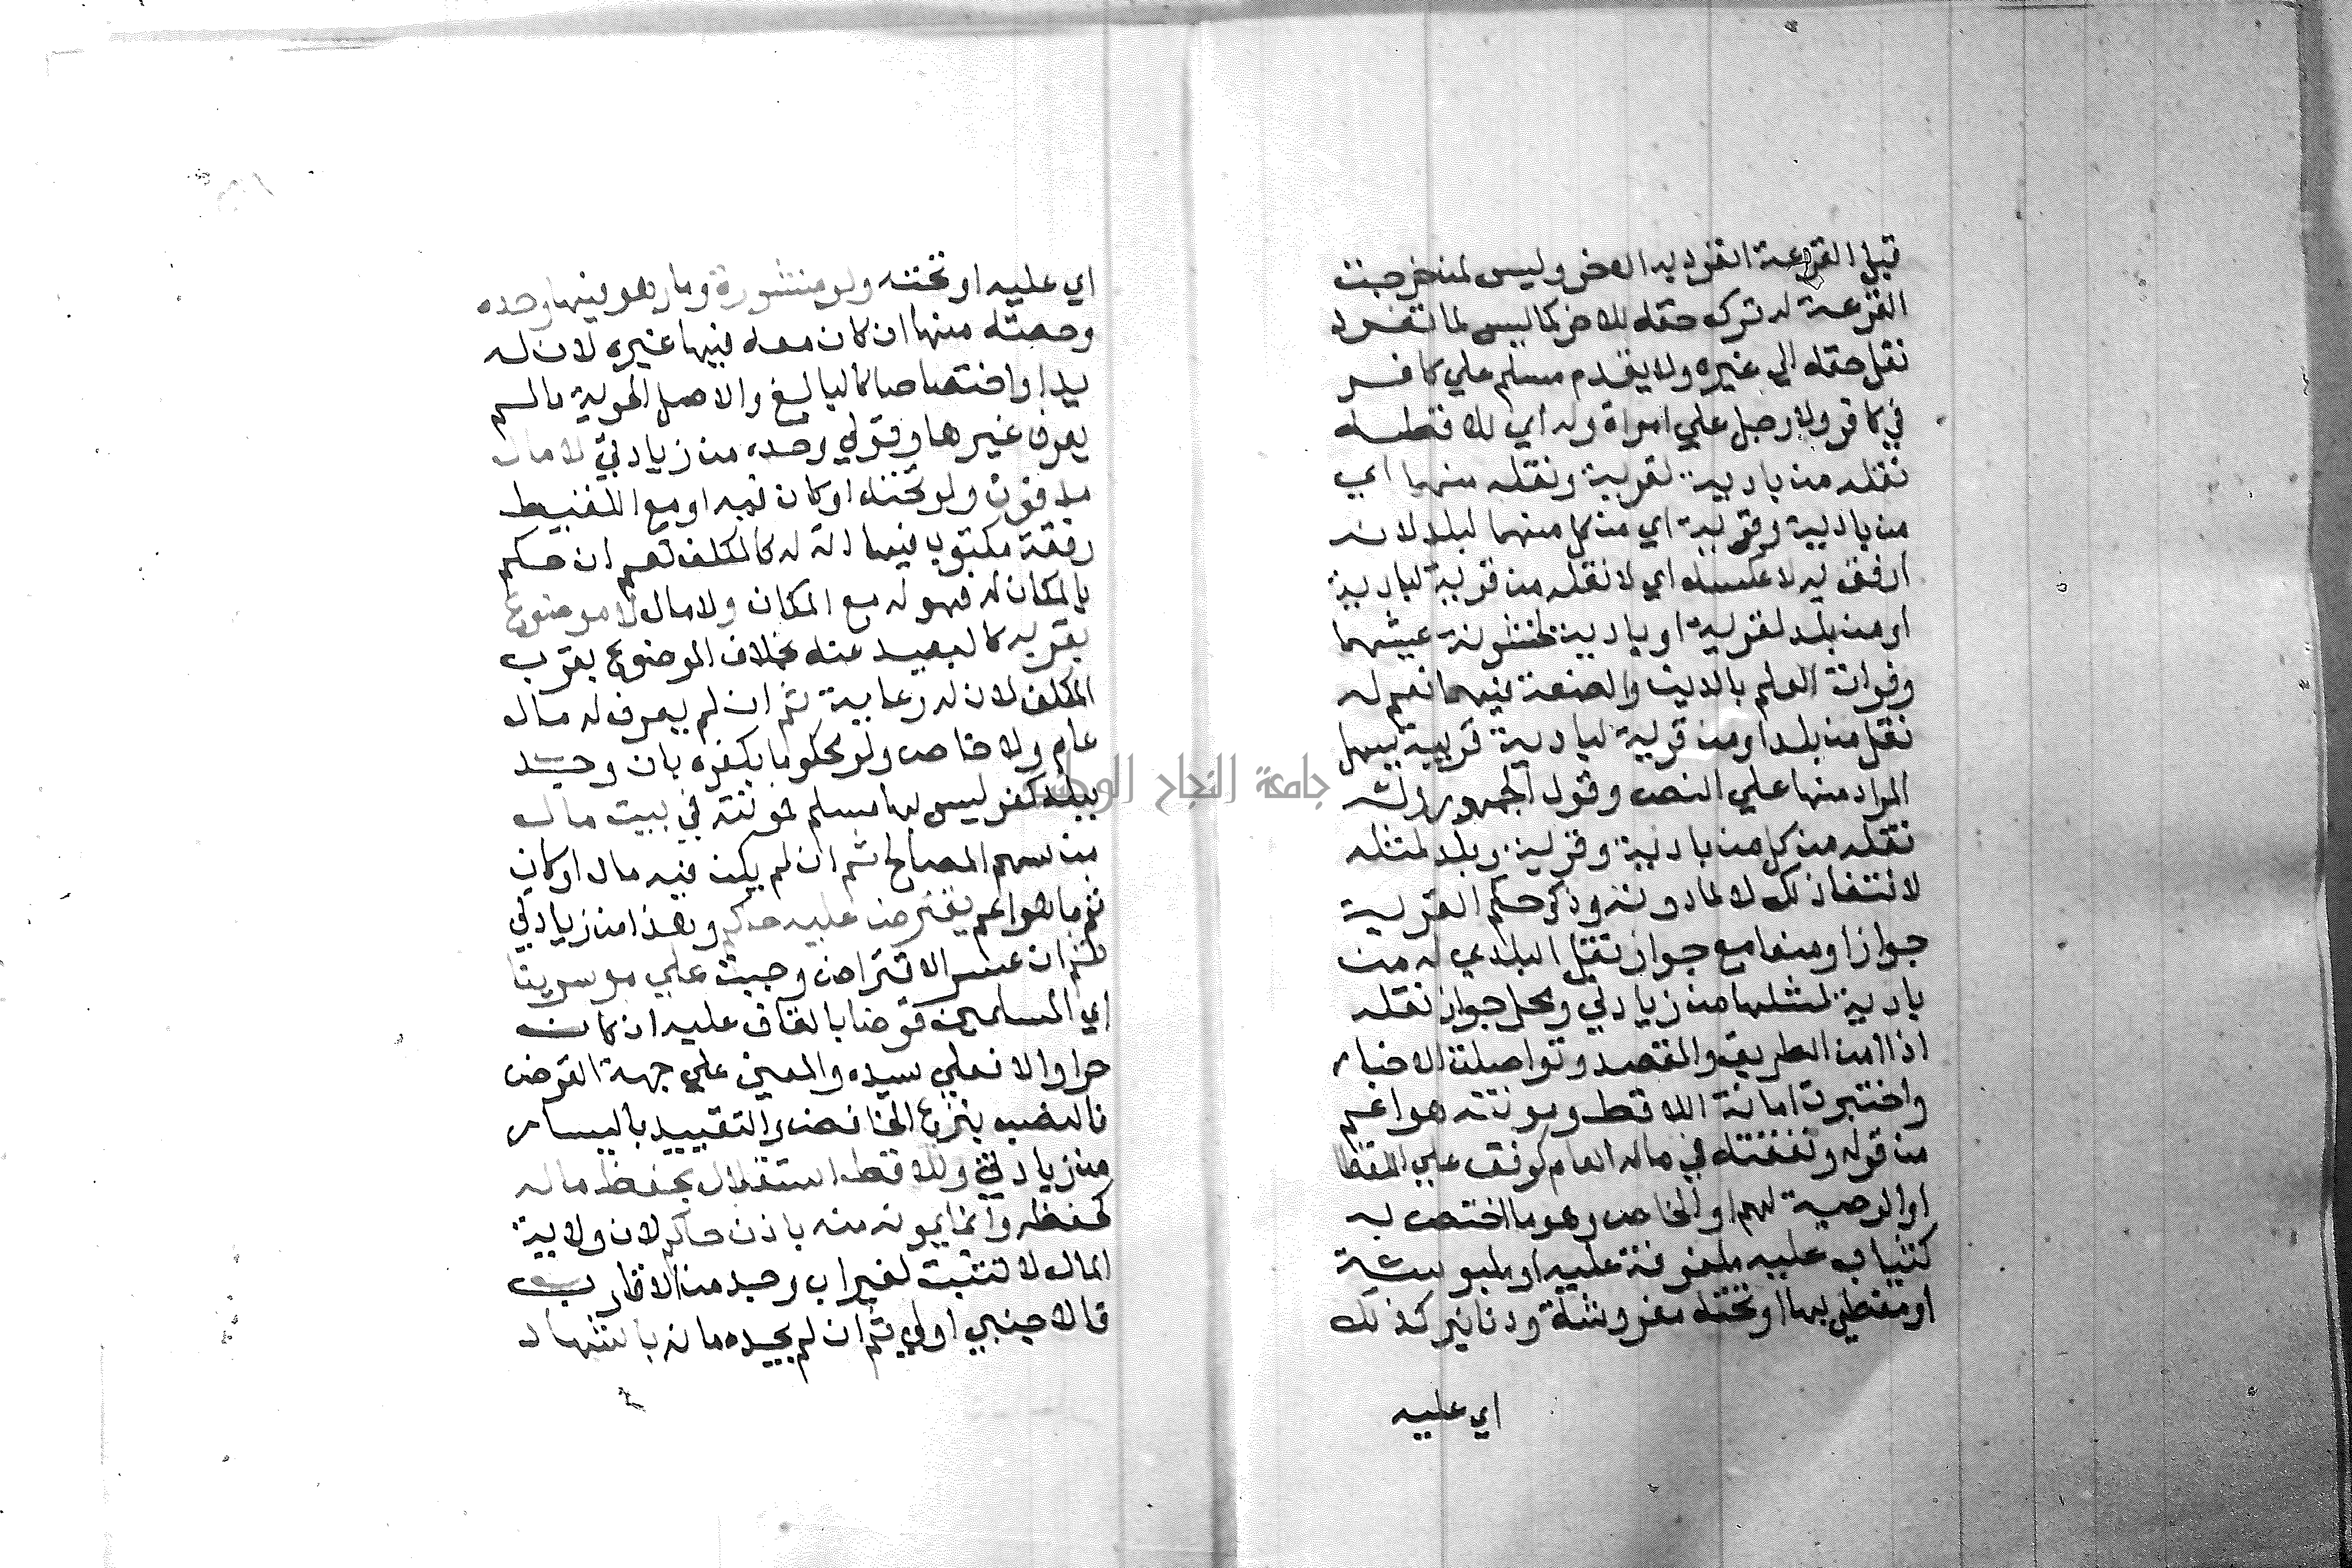 قبل القرعة انفرد به الاخر وليس لمن خرجت
القرعة له ترك حقه للاخر كما ليس لمانفرد
نقل حقه الي غيره ولا يقدم مسلم علي كافر
في كافر ولا رجل علي امراة وله اي للاقطه
نقله من بادية لقرية ونقله منهما اي
من بادية وقرية اي من كل منهما لبلد لانه
ارفق به لا عكسه اي لا نقله من قرية لبادية
او من بلد لقرية او بادية لخشونة عيشهما
وفوات العلم بالدين والصنعة فيهما نعم له
نقل من بلد او من قرية لبادية قريبة يسهل
المراد منها علي النص وقول الجمهور وله
نقله من كل من بادية وقرية وبلد لمثله
لانتفا ذلك لا لما دونه وذكر حكم القرية
جوازا ومنعا مع جواز نقل البلدي له من
بادية لمثلها من زيادتي ومحل جواز نقله
اذا امن الطريق والمقصد وتواصلت الاخبار
واختبرت امانة اللاقط ومونته هو اعم
من قوله ونفقته في ماله العام كوقف علي اللقطا
او الوصية لهم او الخاص وهو ما اختص به
كثياب عليه ملفوفة عليه او ملبوسة
او مغطي بها او تحته مفروشة ودنانير كذلك
اي عليه
اي عليه او تحته ولو منثورة ودار هو فيها وحده
وحصته منها ان كان معه فيها غيره لان له
يدا واختصاصا كالبالغ والاصل الحرية مالم
يعرف غيرها وقولي وحده من زيادتي لا مال
مدفون ولو تحته او كان فيه او مع اللقيط
رقعة مكتوب فيها انه له كالمكلف نعم ان حكم
بالمكان له فهو له مع المكان ولا مال موضوع
بقربه كالبعيد عنه بخلاف الموضوع بقرب
المكلف لان له رعاية ثم ان لم يعرف له مال
عام ولا خاص ولو محكوما بكفره بان وجد
ببلد كفر ليس بها مسلم فمونته في بيت مال
من سهم المصالح ثم ان لم يكن فيه مال او كان
ثم ما هو اهم يقترض عليه حاكم وهذا من زيادتي
ثم ان عسر الاقتراض وجبت علي موسرينا
اي المسلمين قرضا بالقاف عليه ان كان
حرا والا فعلي سيده والمعني علي جهة القرض
فالنصب بنزع الخافض والتقييد باليسار
من زيادتي وللاقط استقلال بحفظ ماله
كحفظه وانما يمونه منه باذن حاكم لان ولاية
المال لا تثبت لغير اب وجد من الاقارب
فالاجنبي اولي ثم ان لم يجده مانه باشهاد
جامعة النجاح الوطنية